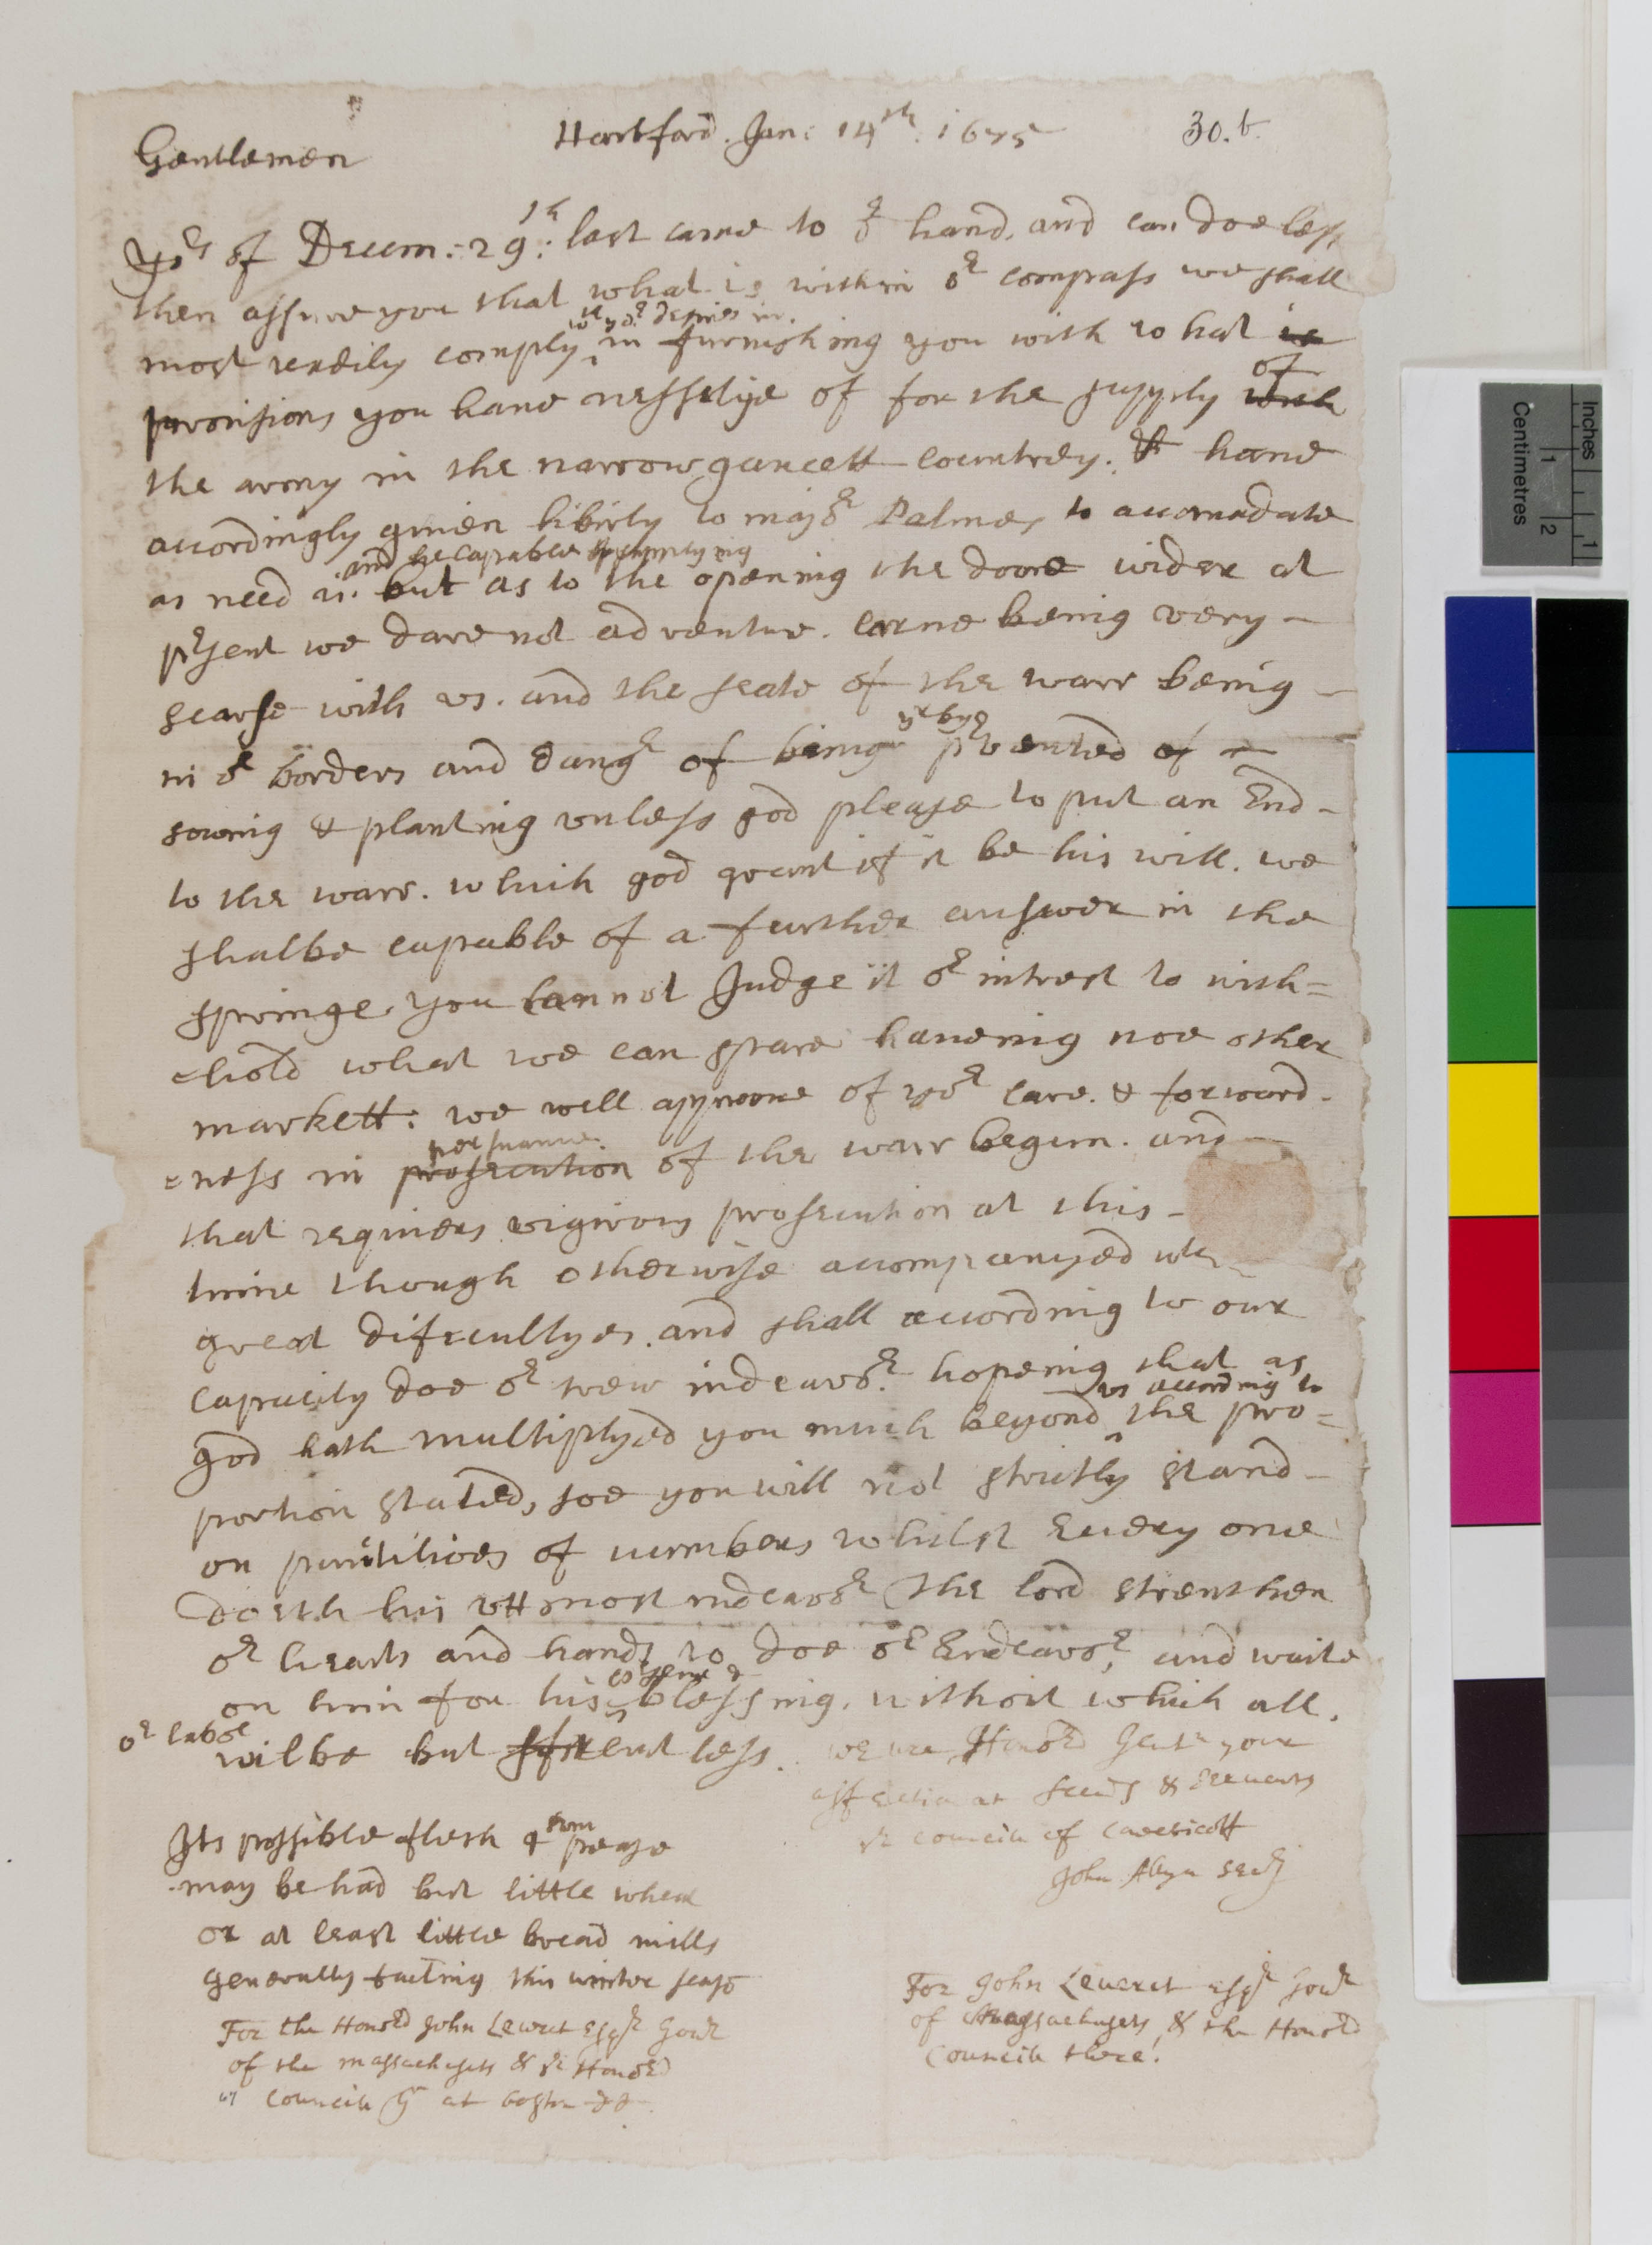 Hartford. Jan: 14th. 1675 30.b.
Gentlemen
yors of Decem:29th: last came to or hand, and can doe less
then assure you that what is within or compass we shall
wth yor desires in.
most readily comply in furnishing you with what is
of
provisions you have nessetye of for the supply with
the army in the narrowgancett countrey. & have
accordingly given liberty to major Palmes to accomadate
and be capable of supplying
as need is. but as to the opening the doore wider at
prsent we dare not adventure. corne being very -
scarse with us. and the seate of the warr being -
yrby
in or borders and dangr of being prvented of -
sowing & planting unless god please to put an End -
to the warr. which god grant if it be his will. we
shalbe capable of a further answer in the
springe, you cannot Judge it or intrest to with=
=hold what we can spare haveing noe other
markett: we well approve of yor care. & forward-
persuance.
=ness in prosecution of the warr begun. and -
that requiers vigirous prosecution at this -
time though otherwise accompanyed wth
great difficultyes. and shall according to our
capacity doe or indeavor. hopeing that as
us according to
god hath multiplyed you much beyond the pro=
portion stated, soe you will not strictly stand -
on puntilioes of numbers whilst Every one
doeth his uttmost indeavor (The lord strenthen
or hearts and hands to doe or Endeavor, and waite
on him for his blessing. without which all.
or labor
wilbe but less. we are Honord Gentn your
affectionat freinds & servants
ye councill of Conecticott
John Allyn Secry
Its possible flesh & som pease
may be had but little wheat
or at least little bread mills
generally failing this winter seaso
For the Honord John Leveret Esqr Govr
of the massachusets & ye Honord
Councill at boston dd.
For John Leveret esqr Govr
of Massachusets, & the Honord
Councill there.
Centimetres
Inches
1
2
1